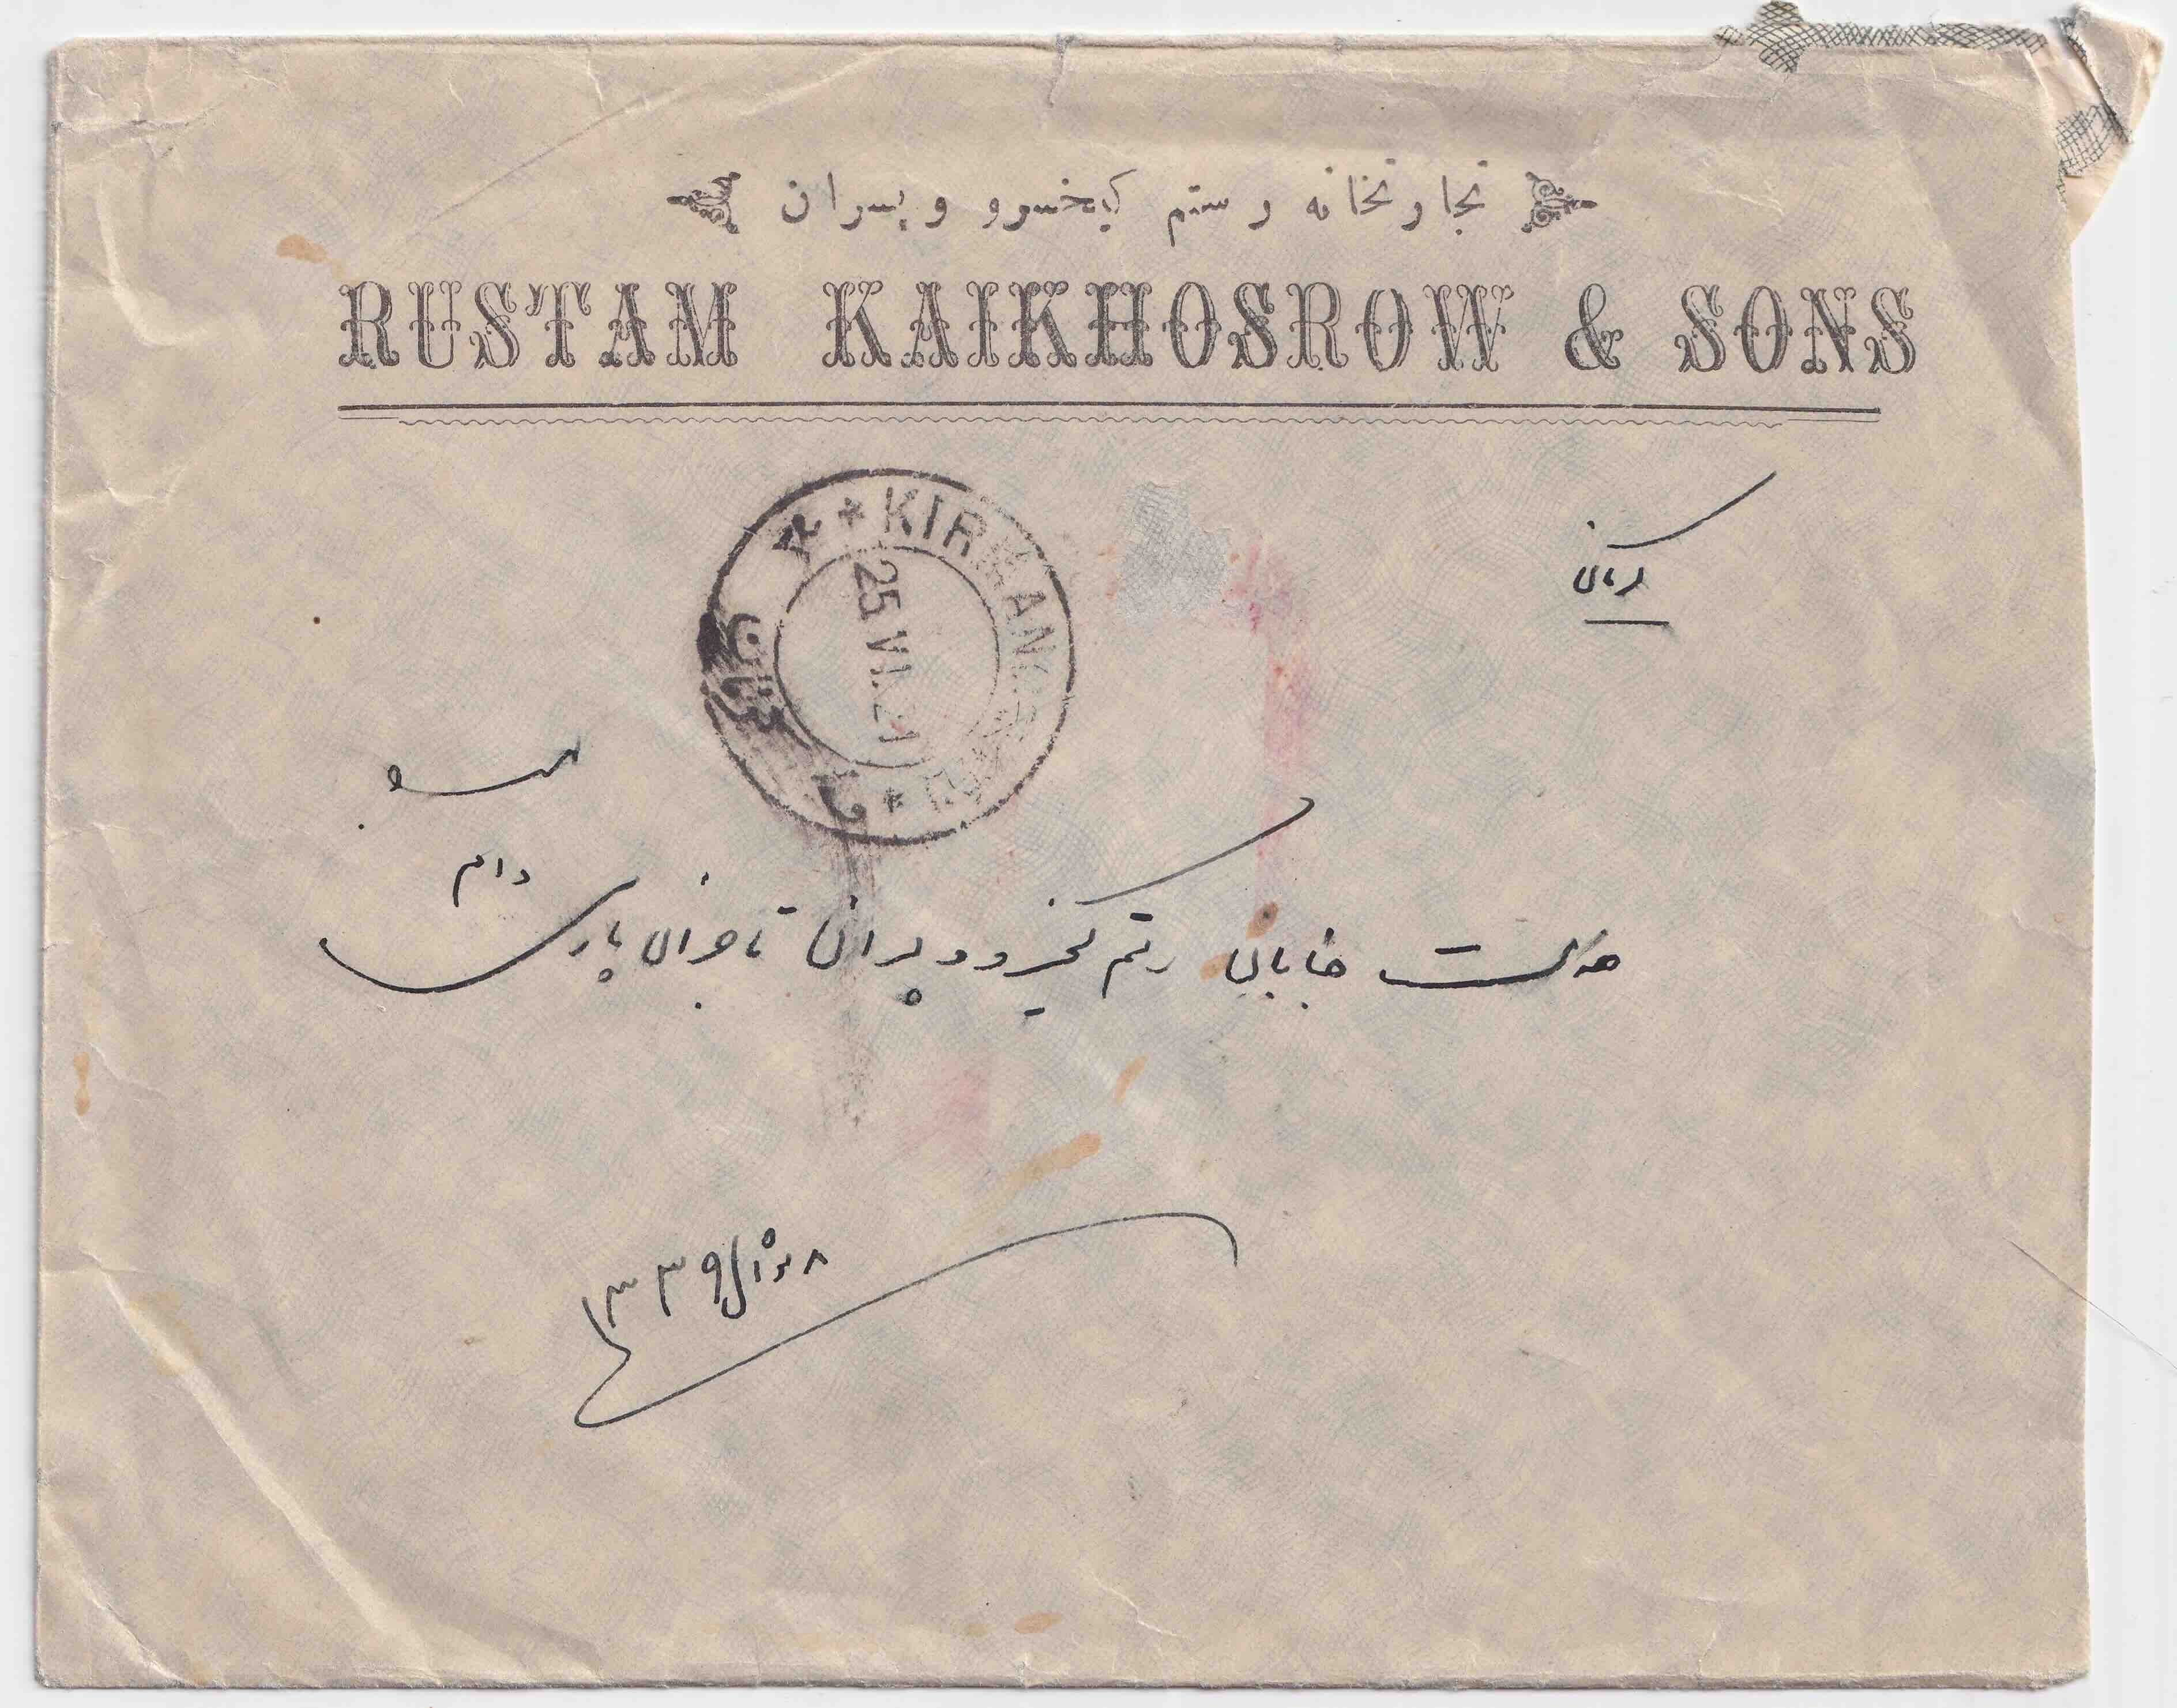 تجارتخانه رستم کیخسرو و پسران
RUSTAM KAIKHOSROW & SONS
KIRMAN
25 VII. 21
کرمان
دام
خدمت جنابان رستم کیخسرو و پسران تاجران پارسی
۱۳۳۹